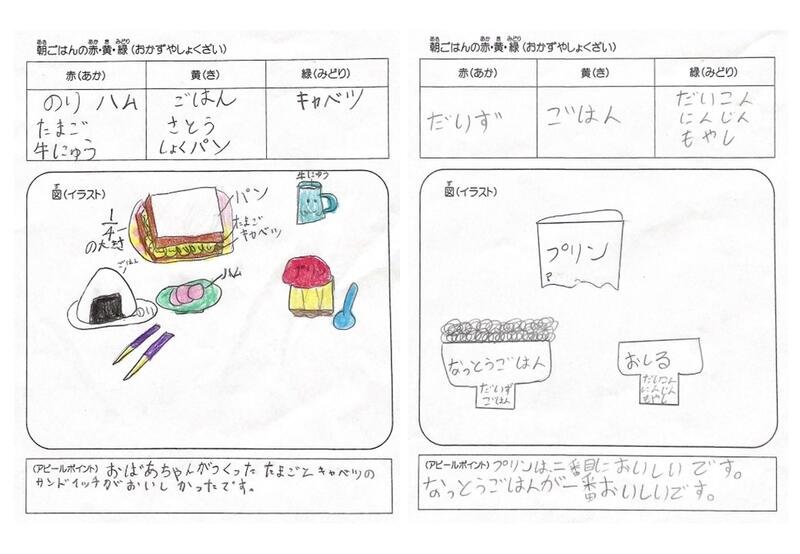 朝ごはんの赤・黄・緑(おかずやしょくざい)
赤(あか) 黄(き) 緑(みどり)
のり ハム ごはん キャベツ
たまご さとう
牛にゅう しょくパン
図(イラスト)
牛にゅう
パン
1/4
の大きさ
たまご
キャベツ
ごはん
ハム
プリン
のり
(アピールポイント) おばあちゃんがつくった たまごと キャベツの
サンドイッチがおいしかったです。
朝ごはんの赤・黄・緑(おかずやしょくざい)
赤(あか) 黄(き) 緑(みどり)
だいず ごはん だいこん
にんじん
もやし
図(イラスト)
プリン
?
なっとうごはん
だいず
ごはん
おしる
だいこん
にんじん
もやし
(アピールポイント) プリンは、二番目においしいです。
なっとうごはんが一番おいしいです。